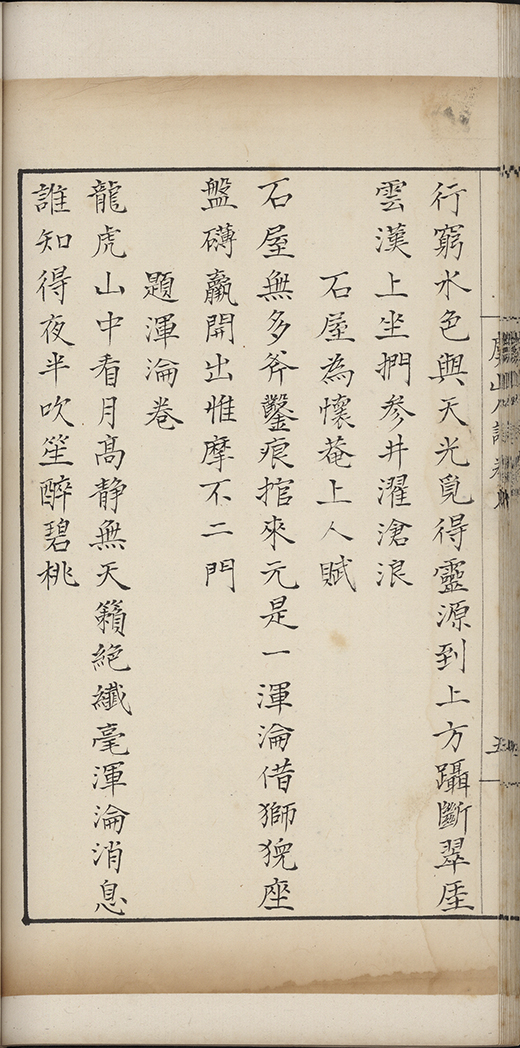 行窮水色與天光覓得靈源到上方躡斷翠厓
雲漢上坐捫参井濯滄浪
石屋為懷菴上人賦
石屋無多斧鑿痕捾來元是一渾淪借獅猊座
盤礴臝開出惟摩不二門
題渾淪卷
龍虎山中看月髙静無天籟絶纎毫渾淪消息
誰知得夜半吹笙醉碧桃